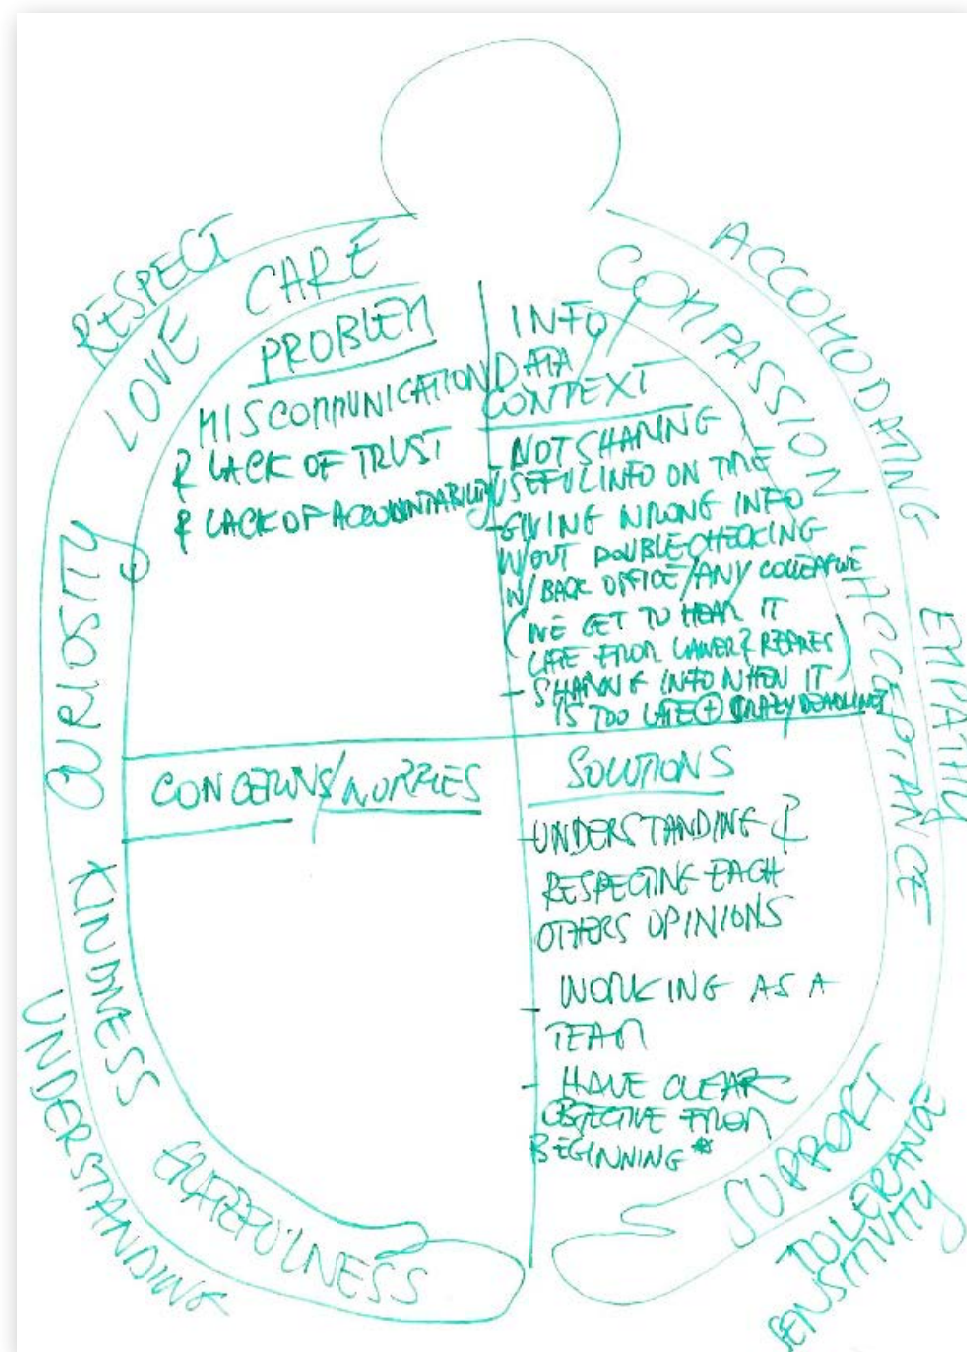 RESPECT
LOVE CARE
CURIOSITY
KINDNESS
UNDERSTANDING
GRATEFULNESS
COMPASSION
ACCOMODATING
ACCEPTANCE
EMPATHY
SUPPORT
TOLERANCE
SENSITIVITY
PROBLEM
MISCOMMUNICATION
& LACK OF TRUST
& LACK OF ACCOUNTABILITY
INFO
DATA
CONTEXT
- NOT SHARING
USEFUL INFO ON TIME
- GIVING WRONG INFO
W/OUT DOUBLE-CHECKING
W/ BACK OFFICE/ANY COLLEAGUE
(WE GET TO HEAR IT
LATE FROM & REPRES)
- SHARING INFO WHEN IT
IS TOO LATE + CRAZY DEADLINES
CONCERNS/WORRIES
SOLUTIONS
- UNDERSTANDING &
RESPECTING EACH
OTHERS OPINIONS
- WORKING AS A
TEAM
- HAVE CLEAR
OBJECTIVE FROM
BEGINNING *